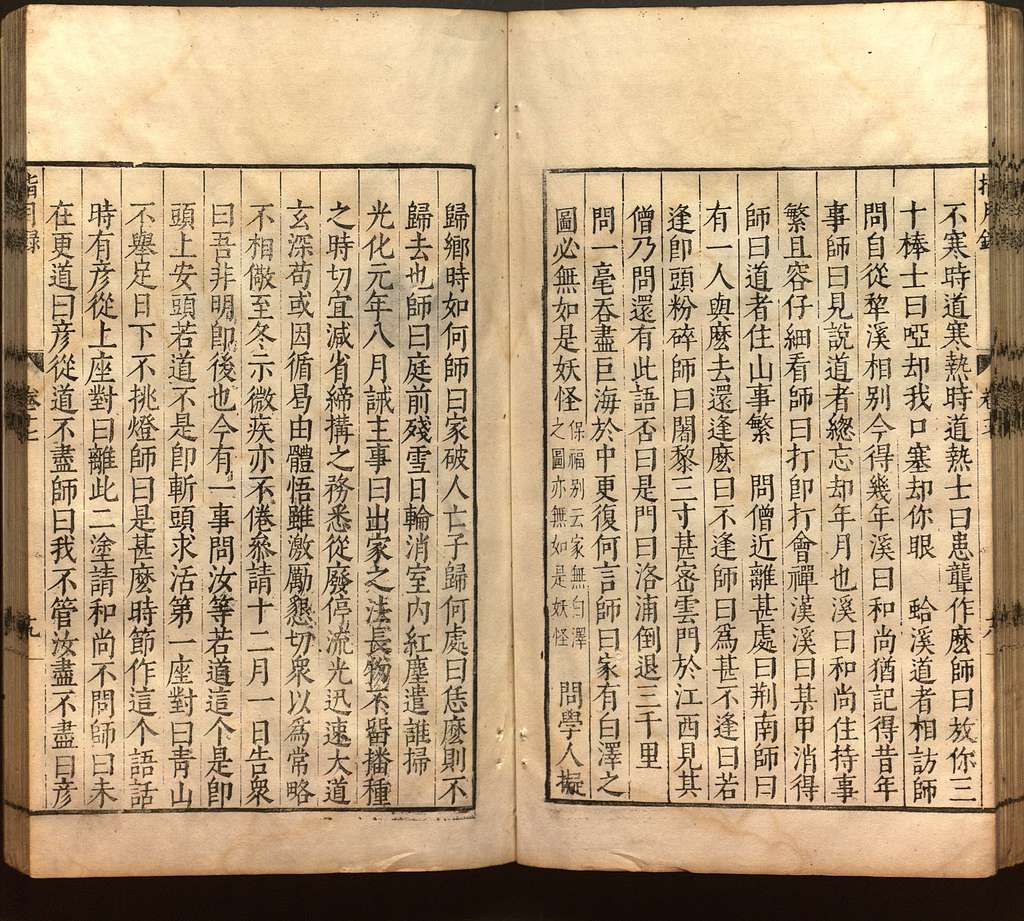 不寒時道寒熱時道熱士曰患聾作麽師曰放你三
十棒士曰啞却我口塞却你眼　蛤溪道者相訪師
問自從犂溪相别今得幾年溪曰和尚猶記得昔年
事師曰見說道者緫忘却年月也溪曰和尚住持事
繁且容仔細看師曰打卽打會禪漢溪曰某甲消得
師曰道者住山事繁　問僧近離甚處曰荆南師曰
有一人與麽去還逢麽曰不逢師曰爲甚不逢曰若
逢卽頭粉碎師曰闍黎三寸甚密雲門於江西見其
僧乃問還有此語否曰是門曰洛浦倒退三千里
問一毫吞盡巨海於中更復何言師曰家有白澤之
圖必無如是妖怪
保福别云家無白澤
之圖亦無如是妖怪
問學人擬
歸鄉時如何師曰家破人亡子歸何處曰恁麽則不
歸去也師曰庭前殘雪日輪消室内紅塵遣誰掃
光化元年八月誡主事曰出家之法長物不留播種
之時切宜減省締搆之務悉從廢停流光迅速大道
玄深苟或因循曷由體悟雖激勵懇切衆以爲常略
不相儆至冬示微疾亦不倦參請十二月一日告衆
曰吾非明卽後也今有一事問汝等若道這个是卽
頭上安頭若道不是卽斬頭求活第一座對曰靑山
不舉足日下不挑燈師曰是甚麽時節作這个語話
時有彦從上座對曰離此二塗請和尚不問師曰未
在更道曰彦從道不盡師曰我不管汝盡不盡曰彦
指月錄